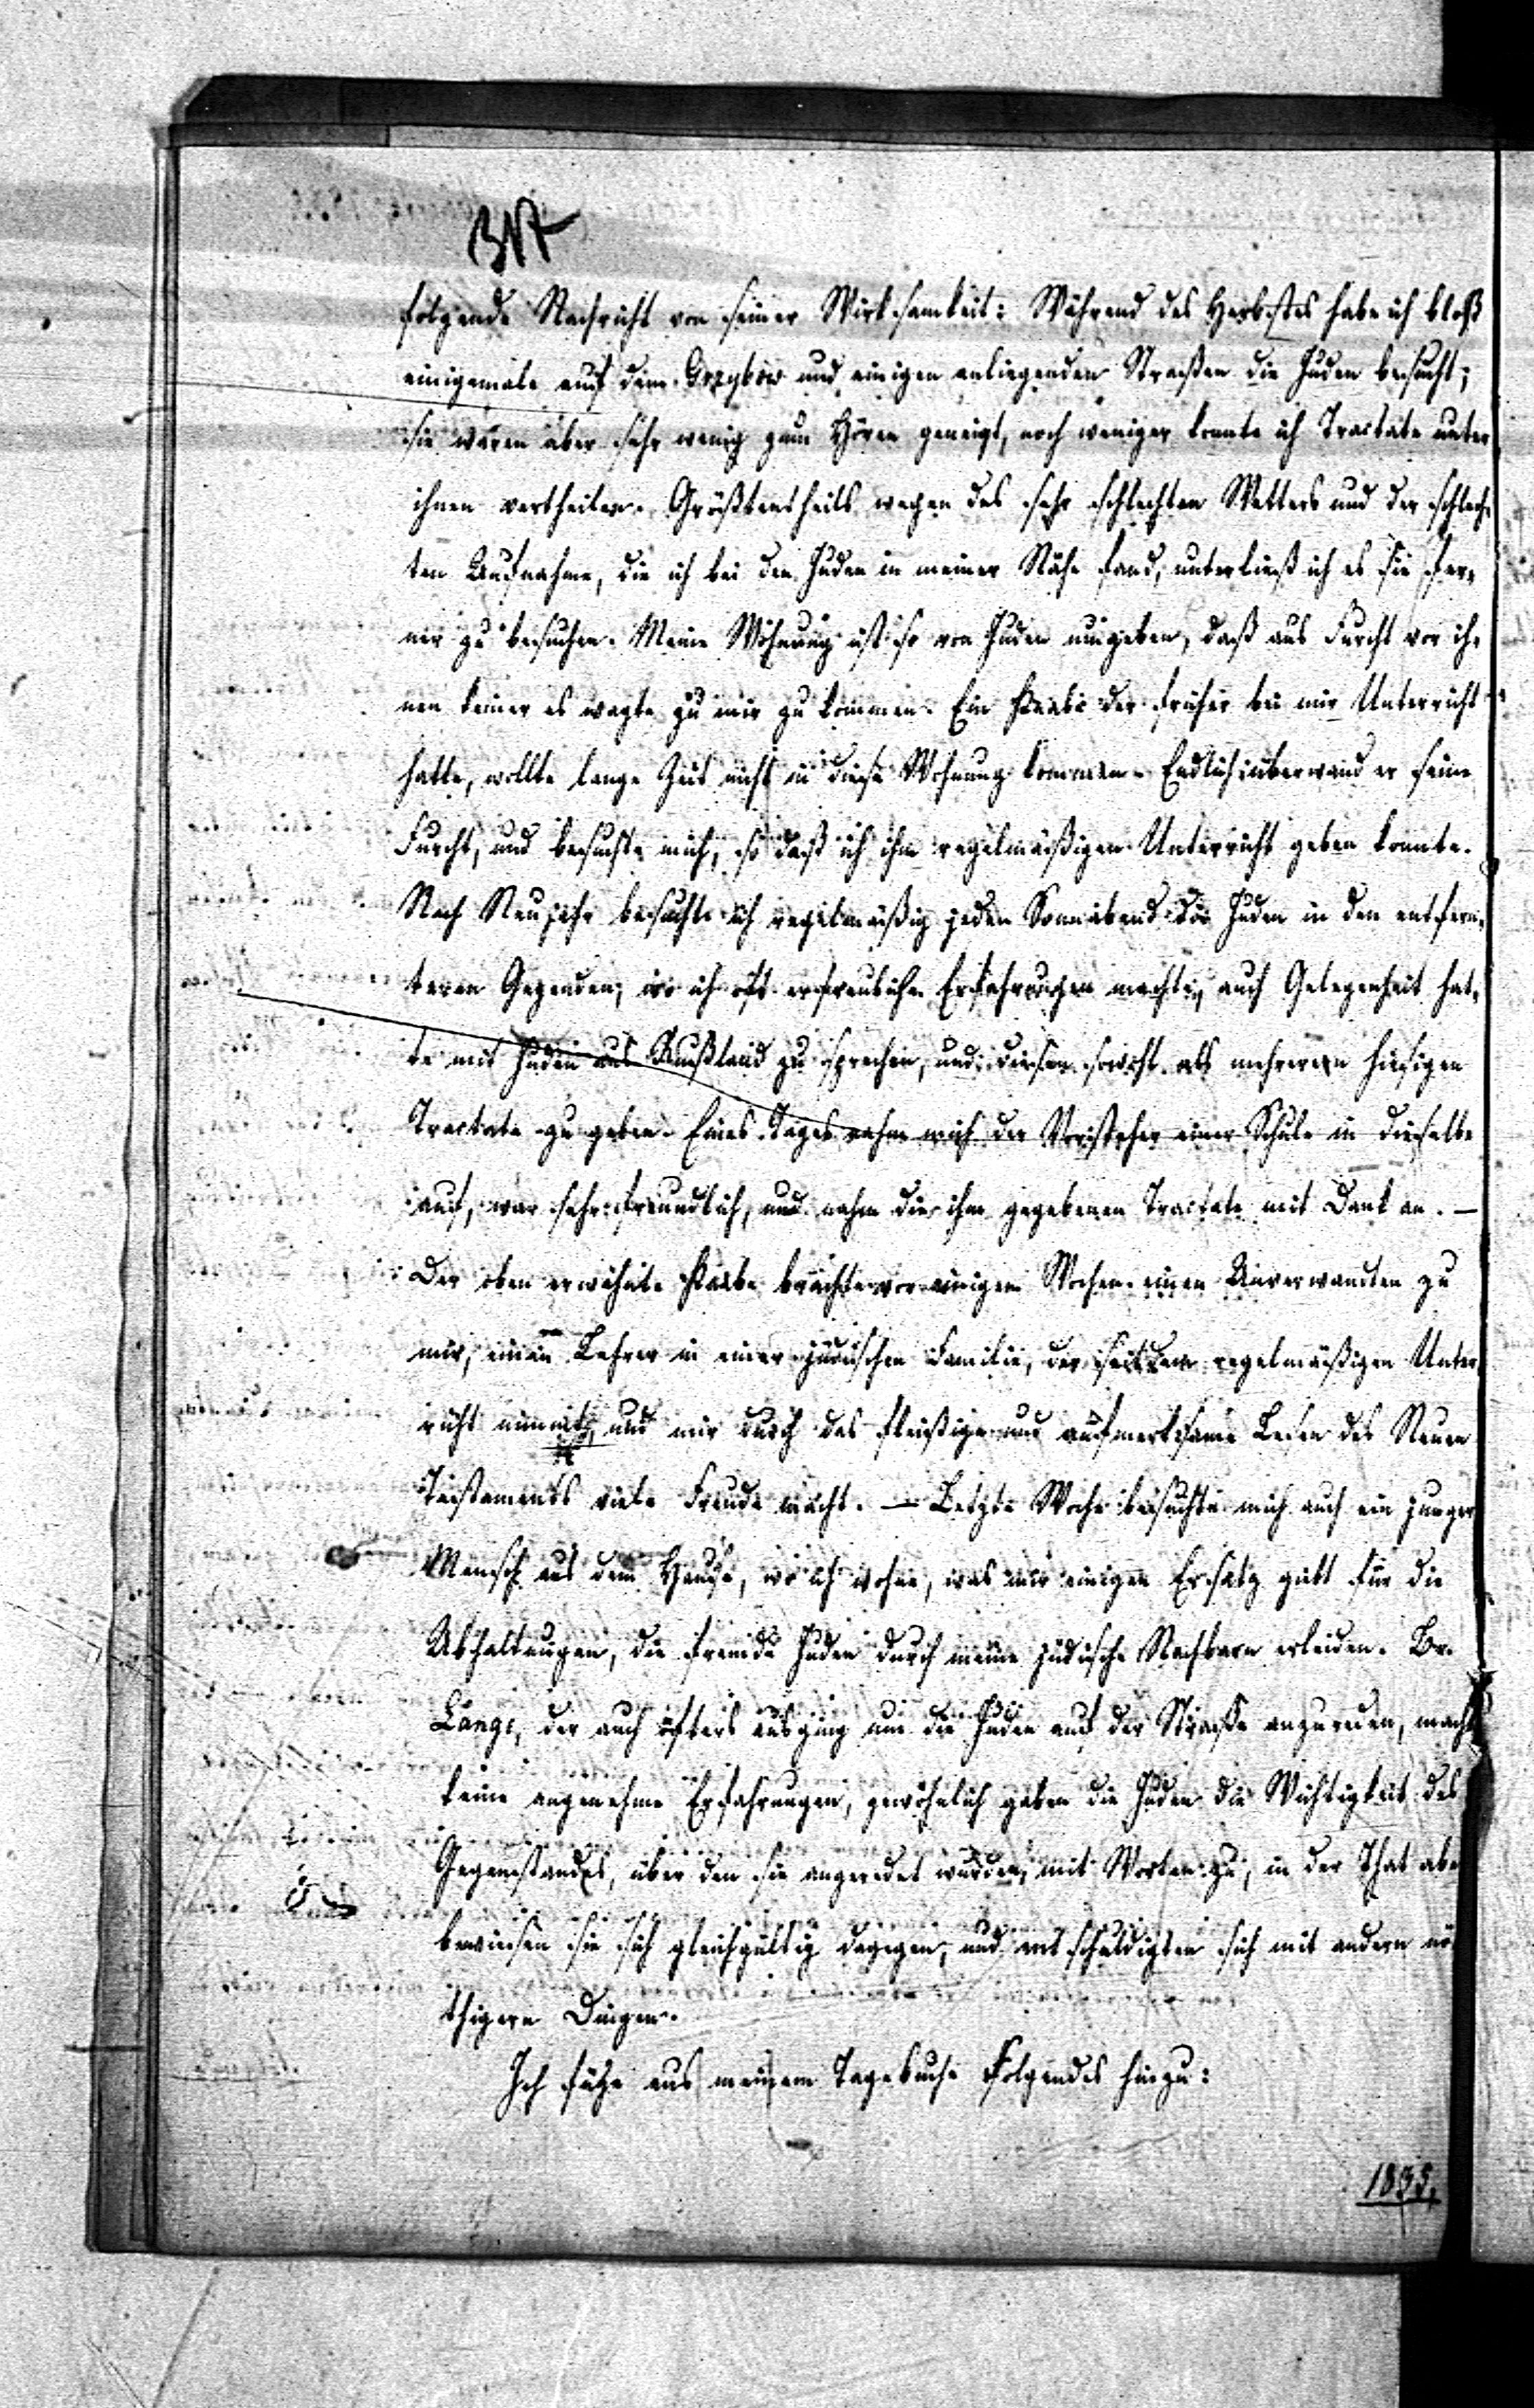 folgende Nachricht von seiner Wirksamkeit: Während des Herbstes habe ich bloß
einigemale auf dem Grzybów und einigen anliegenden Straßen die Juden besucht;
sie waren aber sehr wenig zum Hören geneigt, noch weniger konnte ich Tractate unter
ihnen vertheilen. Größtentheils wegen des sehr schlechten Wetters und der schlech-
ten Aufnahme, die ich bei den Juden in meiner Nähe fand, unterließ ich es sie fer-
ner zu besuchen. Meine Wohnung ist so von Juden umgeben, daß aus Furcht vor ih-
nen keiner es wagte zu mir zu kommen. Ein Knabe der früher bei mir Unterricht
hatte, wollte lange Zeit nicht in diese Wohnung kommen. Endlich überwand er seine
Furcht, und besuchte mich, so daß ich ihm regelmäßigen Unterricht geben konnte.
Nach Neujahr besuchte ich regelmäßig jeden Sonnabend die Juden in den entfern-
teren Gegenden, wo ich oft erfreuliche Erfahrungen machte, auch Gelegenheit hat-
te mit Juden aus Rußland zu sprechen, und diesen sowohl als mehreren hiesigen
Tractate zu geben. Eines Tages nahm mich der Vorsteher einer Schule in dieselbe
auf, war sehr freundlich, und nahm die ihm gegebenen Tractate mit Dank an. —
Der oben erwähnte Knabe brachte vor einigen Wochen einen Anverwandten zu
mir, einen Lehrer in einer jüdischen Familie, der seitdem regelmäßigen Unter-
richt nimmt, und mir durch das fleißige und aufmerksame Lesen des Neuen
Testaments viele Freude macht. — Letzte Woche besuchte mich auch ein junger
Mensch aus dem Hause, wo ich wohne, was mir einigen Ersatz gibt für die
Abhaltungen, die fremde Juden durch meine jüdische Nachbarn erleiden. Br.
Lange, der auch öfters ausging um die Juden auf der Straße anzureden, macht
keine angenehme Erfahrungen, gewöhnlich gaben die Juden die Wichtigkeit des
Gegenstandes, über den sie angeredet wurden, mit Worten zu, in der That aber
bewiesen sie sich gleichgültig dagegen, und entschuldigten sich mit andern nö-
thigern Dingen.
Ich füge aus meinem Tagebuche Folgendes hinzu:
1835.